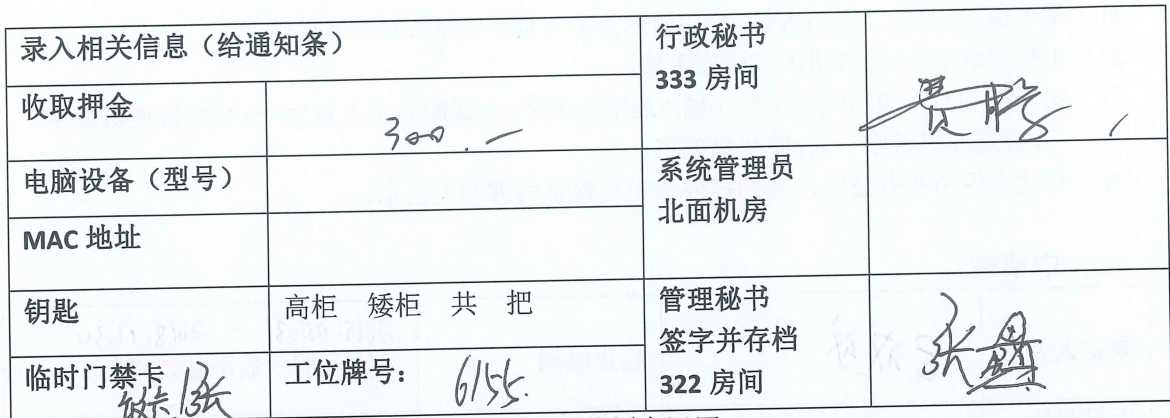 录入相关信息（给通知条）
行政秘书
333 房间
收取押金
300.—
电脑设备（型号）
系统管理员
北面机房
MAC 地址
钥匙
高柜 矮柜 共 把
管理秘书
签字并存档
322 房间
张
临时门禁卡
1张
工位牌号：
6155.